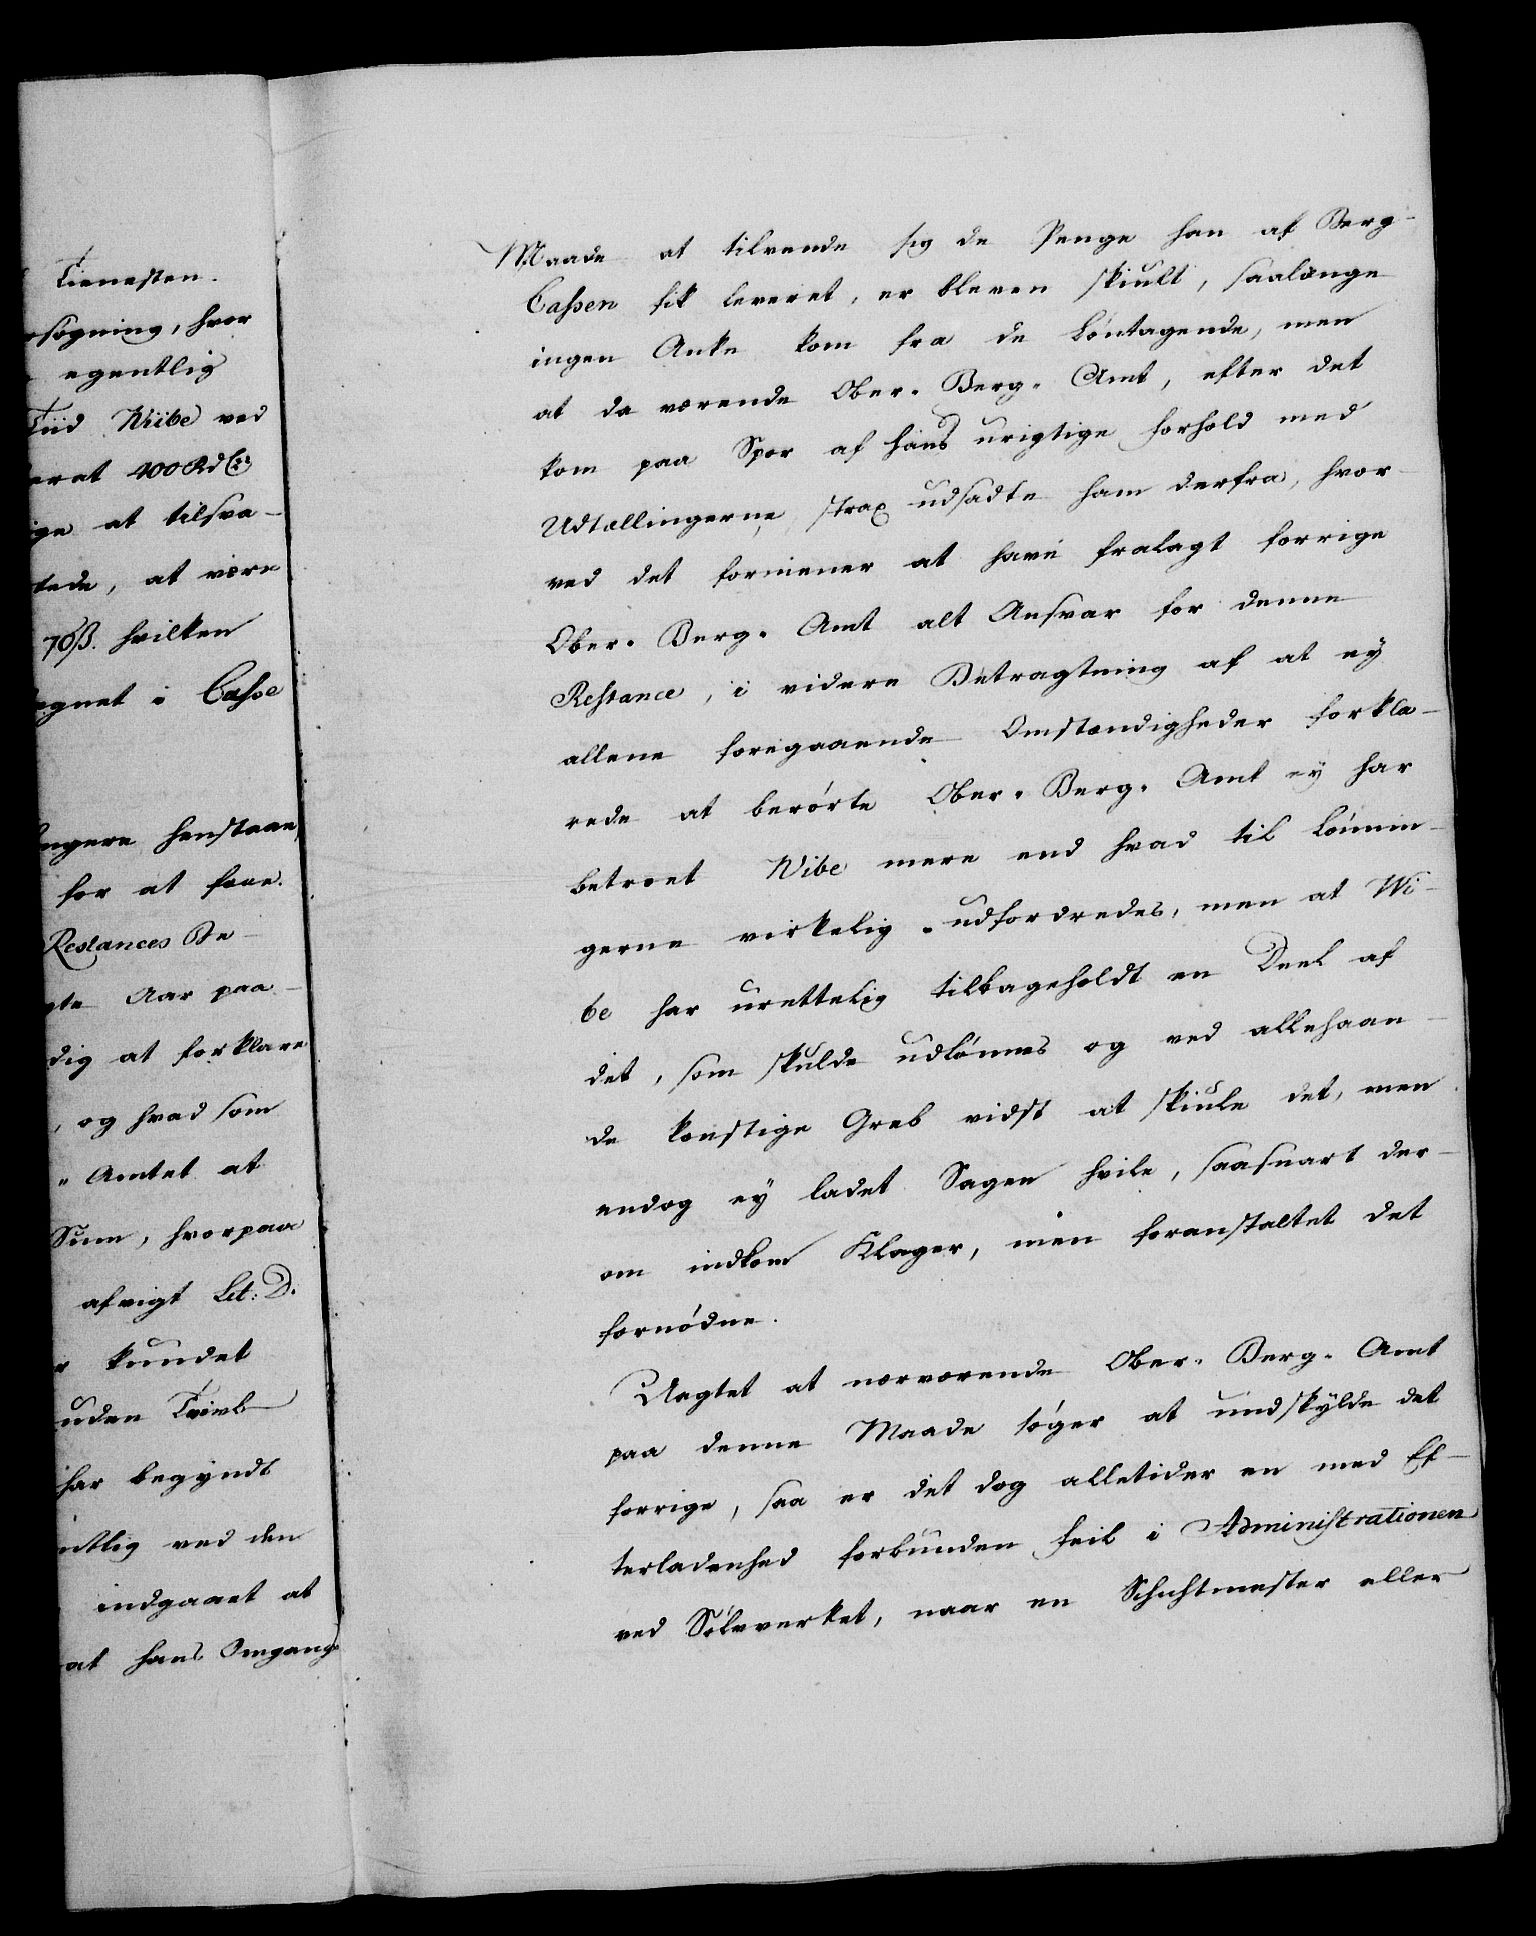 Tienesten.
søgning, hvor
egentlig
Tiid Wiibe ved
erat 400 Rd
ige at tilsva-
tede, at være
70 ß. hvilken
egnet i Casse
ngere henstaae,
for at faae
Restances Be-
gte Aar paa-
dig at forklare
, og hvad som
" Amtet at
Sum, hvorpaa
afvigt Lit: D.
kundet
uden Tvivl
har begyndt
ntlig ved den
indgaaet at
at hans Omgang
Maade at tilvende sig de Penge han af Berg-
Cassen fik leveret, er bleven skiult, saalænge
ingen Anke kom fra de Løntagende, men
at da værende Ober-Berg-Amt, efter det
kom paa Spor af hans urigtige Forhold med
Udtællingerne, strax udsadte ham derfra, hvor-
ved det formener at have fralagt forrige
Ober-Berg-Amt alt Ansvar for denne
Restance, i videre Betragtning af at ey
allene foregaaende Omstændigheder forkla-
rede at berørte Ober-Berg-Amt ey har
betroet Wibe mere end hvad til Lønnin-
gerne virkelig udfordredes, men at Wi-
be har urettelig tilbageholdt en Deel af
det, som skulde udlønnes og ved allehaan-
de konstige Greb vidst at skiule det, men
endog ey ladet Sagen hvile, saasnart der-
om indkom Klager, men foranstaltet det
fornødne.
Uagtet at nærværende Ober-Berg-Amt
paa denne Maade søger at undskylde det
forrige, saa er det dog alletider en med Ef-
terladenhed forbunden Feil i Administrationen
ved Sølvverket, naar en Schichtmester eller